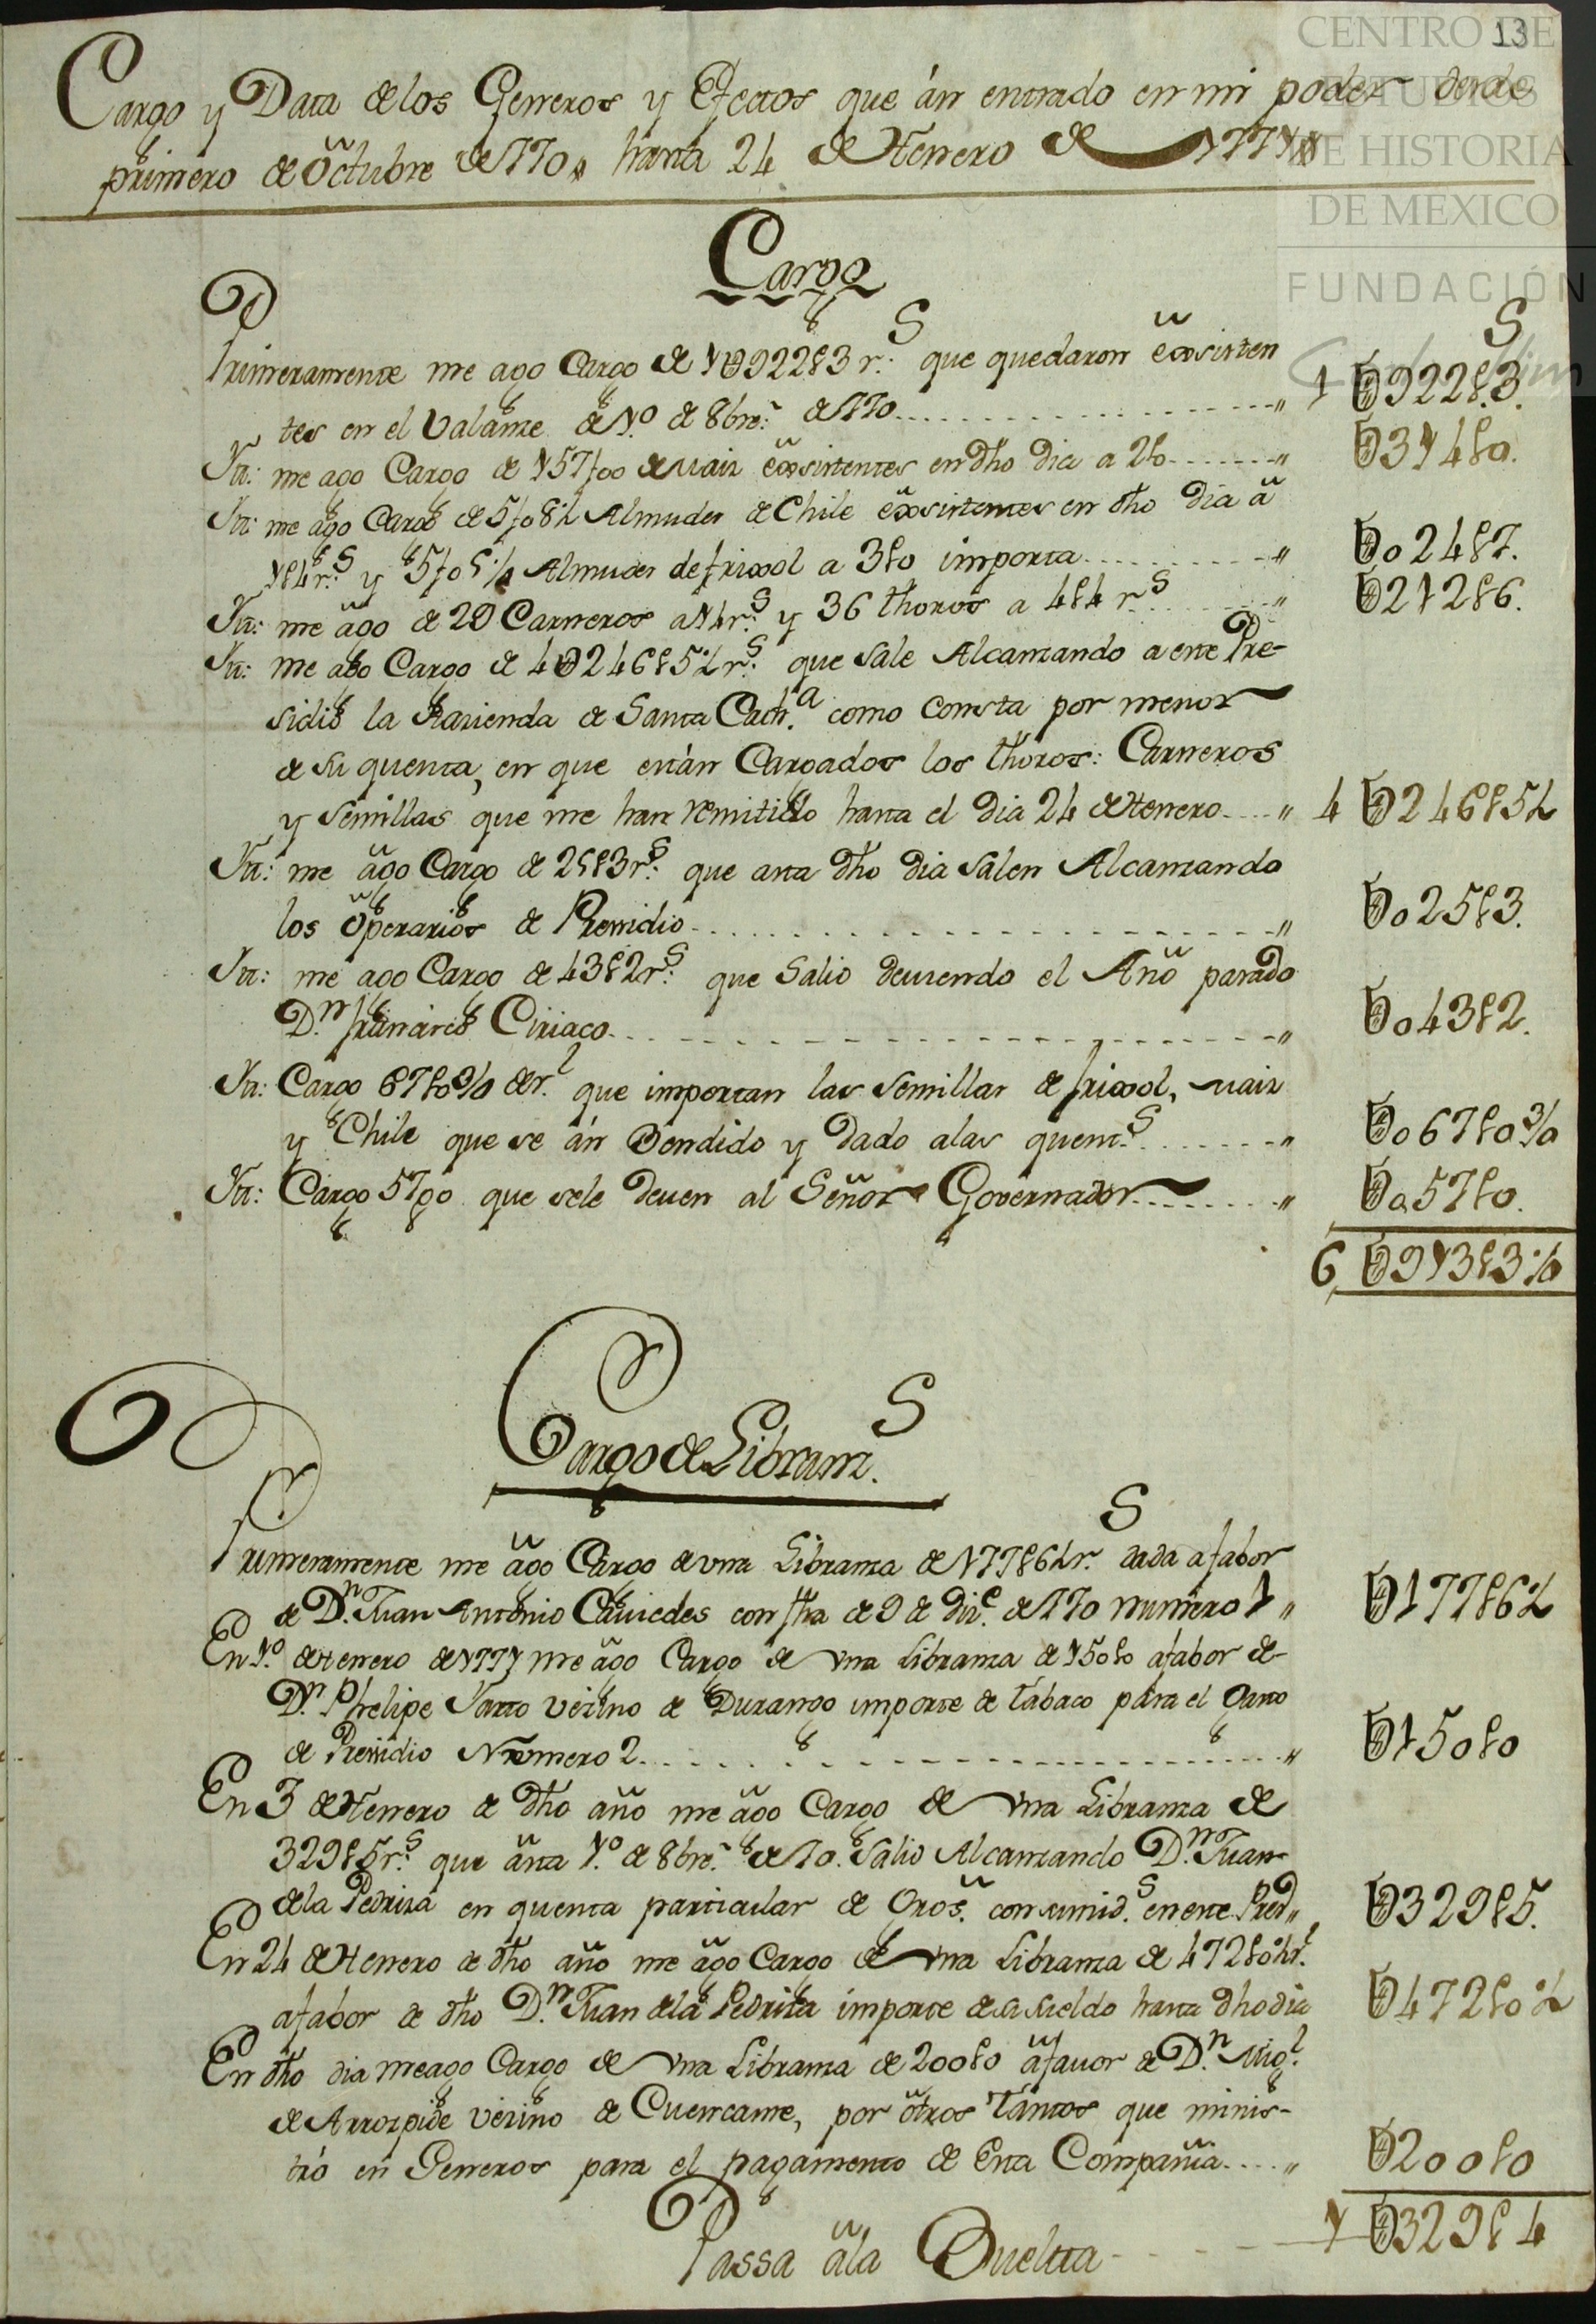 13
CENTRO DE
ESTUDIOS
DE HISTORIA
DE MEXICO
FUNDACIÓN
Cargo y Data de los Generos y Efectos que án entrado en mi poder desde
primero de Octubre de 770, hasta 24 de Henero de 1771
Cargo
Primeramente me ago Cargo de 1U922 p 3 r.s que quedaron exsisten
tes en el Valanze de 1.o de 8bre. de 770 1 U922 p 3.
Itt: me ago Cargo de 157 f 00 de maiz exsistentes en dho dia a 2 p 0 U314 p 0.
Itt: me ago Cargo de 5 f 08 ½ Almudes de Chile exsistentes en dho dia â
1 p 4 r.s y 5 f 0 Almudes de frixol a 3 p 0 importa U024 p 7.
Itt: me ago de 29 Carneros a 14 r.s y 36 thoros a 4 p 4 r.s U212 p 6.
Itt: me ago Cargo de 4U246 p 5 ½ r.s que sale Alcanzando a este Pre-
sidio la Hazienda de Santa Cath.a como consta por menor
de su quenta, en que están Cargados los thoros: Carneros
y Semillas que me han remitido hasta el dia 24 de Henero 4 U246 p 5 ½
Itt: me ago Cargo de 25 p 3 r.s que asta dho dia salen Alcanzando
los operarios de Presidio U025 p 3.
Itt: me ago Cargo de 43 p 2 r.s que Salio deviendo el Año pasado
D.n Francisco Ciriaco U043 p 2.
Itt: Cargo 67 p 0 ¾ de r.l que importan las Semillas de frixol, maiz
y Chile que se án Bendido y dado a las quent.s U067 p 0 ¾
Itt: Cargo 57 p 0 que sele deven al Señor Governador U057 p 0.
6 U913 p 3 ¼
Cargo de Libranz.s
Primeramente me ago Cargo de vna Libranza de 177 p 6 ½ r.s dada a fabor
de D.n Juan Antonio Caviedes con fha de 9 de Diz.e de 770 numero 1 U177 p 6 ½
En 1.o de Henero de 1771 me ago Cargo de vna Libranza de 150 p 0 a fabor de
D.n Phelipe Yarto vezino de Durango importe de tabaco para el Gasto
de Presidio Numero 2 U150 p 0
En 3 de Henero de dho año me ago Cargo de vna Libranza de
329 p 5 r.s que asta 1.o de 8bre. de 70. Salio Alcanzando D.n Juan
de la Pedriza en quenta particular de Gros. consumid.s en este Presd.o U329 p 5.
En 24 de Henero de dho año me ago Cargo de vna Libranza de 472 p 0 ½ r.l
a fabor de dho D.n Juan de la Pedriza importe de su sueldo hasta dho dia U472 p 0 ½
En dho dia me ago Cargo de vna Libranza de 200 p 0 a favor de D.n Mig.l
de Arrozpide vezino de Cuencame, por otros tantos que minis-
tró en Generos para el pagamento de Esta Compañia U200 p 0
1 U329 p 4
Passa â la Buelta